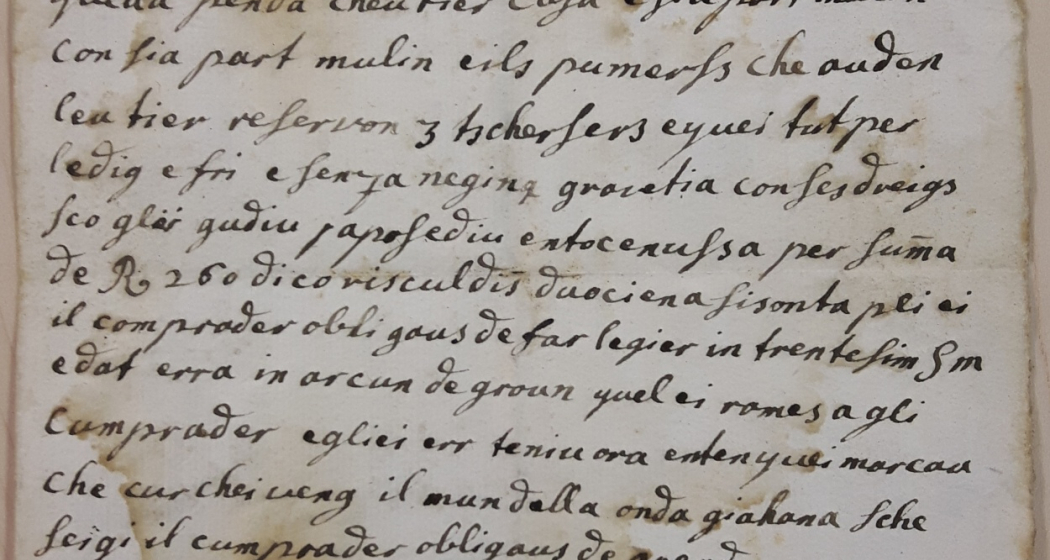 con sia part mulin eils pumerss che auden
leu tier reservon 3 tschersers e quei tut per
ledig e fri e senza negina gravetia con ses dreigs
sco glei gudiu saposediu entocenussa per sum̄a
de R 260 dico risculdis duociena sisonta pli ei
il comprader obligaus de far legier in trentesim
e dat erra in arcun de groun quel ei romes a gli
Cumprader egliei err teniu ora enten quei marcau
che cur chei veng il mun della onda giahana sche
seigi il cumprader obligaus de